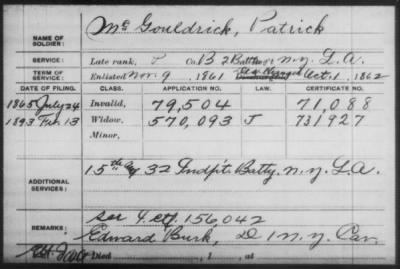 NAME OF SOLDIER: McGouldrick, Patrick
SERVICE: Late rank, P Co. B 2 Batty N.Y. L.A.
TERM OF SERVICE: Enlisted Nov. 9, 1861 Oct. 1, 1862
DATE OF FILING. CLASS. APPLICATION NO. LAW. CERTIFICATE NO.
1865 July 24 Invalid, 79,504 71,088
1893 Feb. 13 Widow, 570,093 J 731927
Minor,
ADDITIONAL SERVICES: 15th & 32 Indpt. Batty. N.Y. L.A.
REMARKS: see Ctf. 156,042
Edward Burk, D 1 N.Y. Cav.
Died , 1 , at